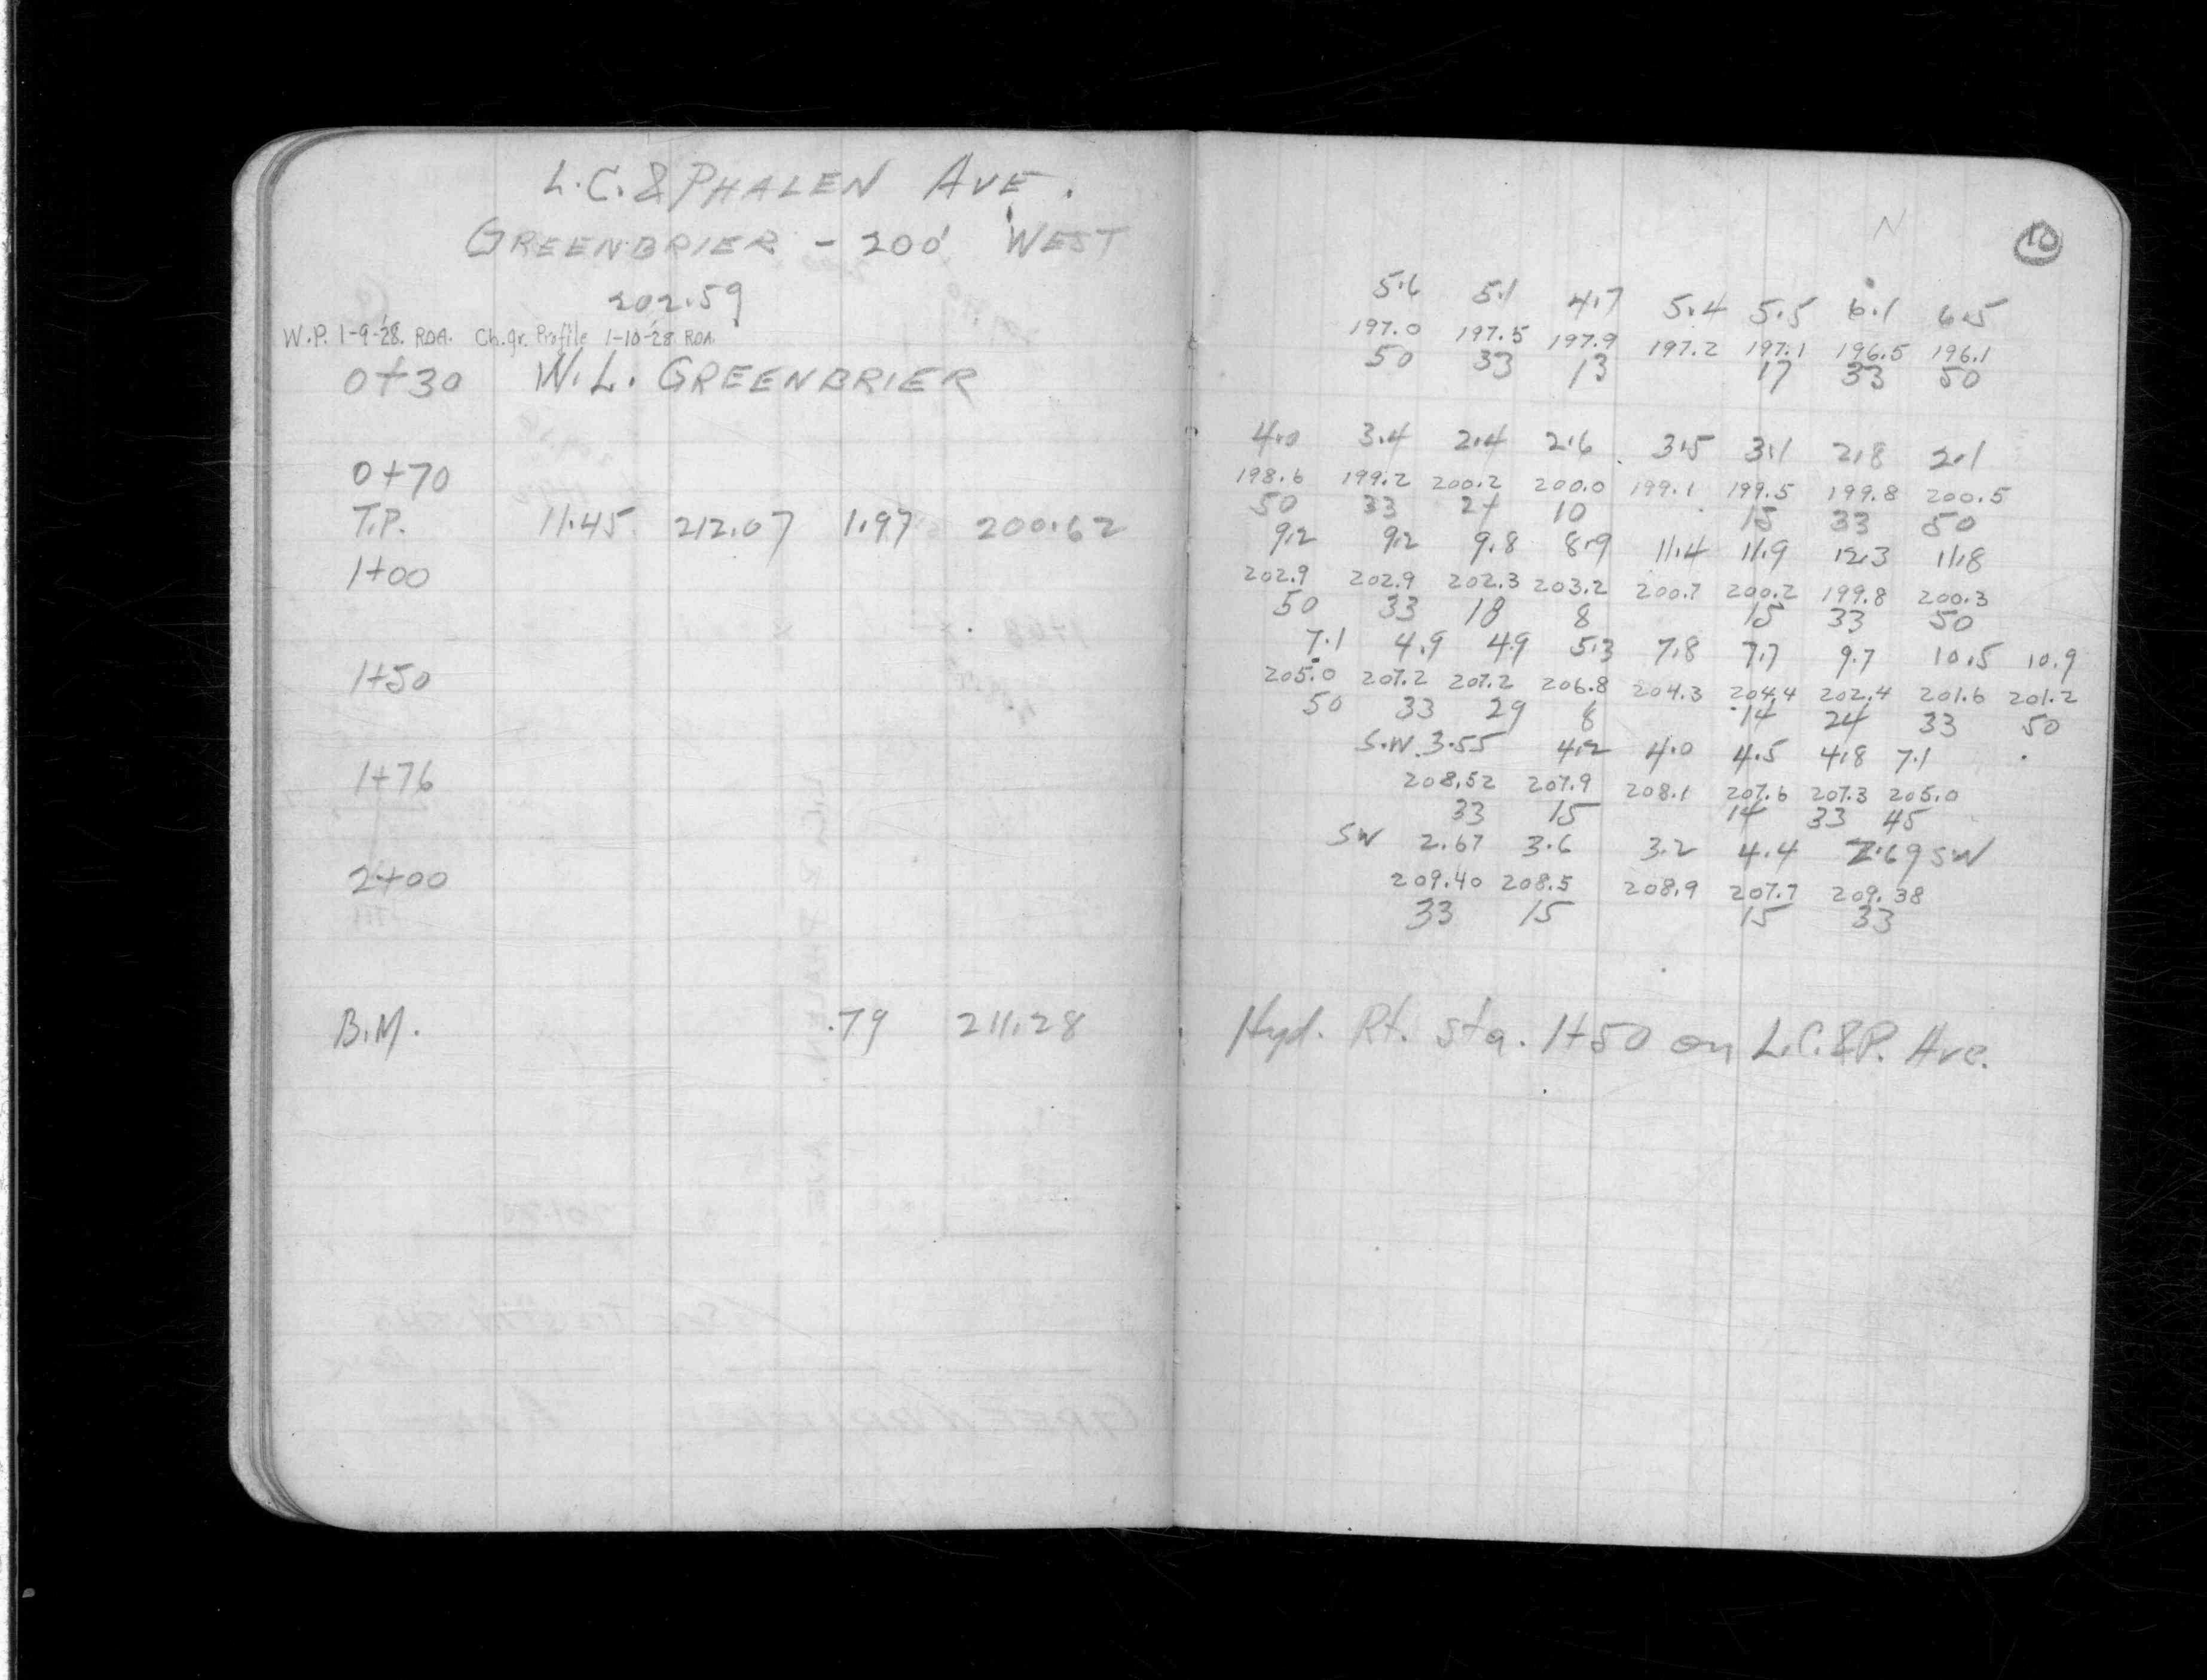 L.C. & PHALEN AVE.
GREENBRIER - 200' WEST
202.59
W.P. 1-9-'28. RDA. Ch.gr. Profile 1-10-'28 RDA.
0+30 W.L. GREENBRIER
0+70
T.P. 11.45 212.07 1.97 200.62
1+00
1+50
1+76
2+00
B.M. .79 211.28
N
10
5.6 5.1 4.7 5.4 5.5 6.1 6.5
197.0 197.5 197.9 197.2 197.1 196.5 196.1
50 33 13 17 33 50
4.0 3.4 2.4 2.6 3.5 3.1 2.8 2.1
198.6 199.2 200.2 200.0 199.1 199.5 199.8 200.5
50 33 10 15 33 50
9.2 9.2 9.8 8.9 11.4 11.9 12.3 11.8
202.9 202.9 202.3 203.2 200.7 200.2 199.8 200.3
50 33 18 8 15 33 50
7.1 4.9 4.9 5.3 7.8 7.7 9.7 10.5 10.9
205.0 207.2 207.2 206.8 204.3 204.4 202.4 201.6 201.2
50 33 29 8 14 24 33 50
S.W. 3.55 4.2 4.0 4.5 4.8 7.1
208.52 207.9 208.1 207.6 207.3 205.0
33 15 14 33 45
SW 2.67 3.6 3.2 4.4 2.69 SW
209.40 208.5 208.9 207.7 209.38
33 15 15 33
Hyd. Rt. sta. 1+50 on L.C.&P. Ave.